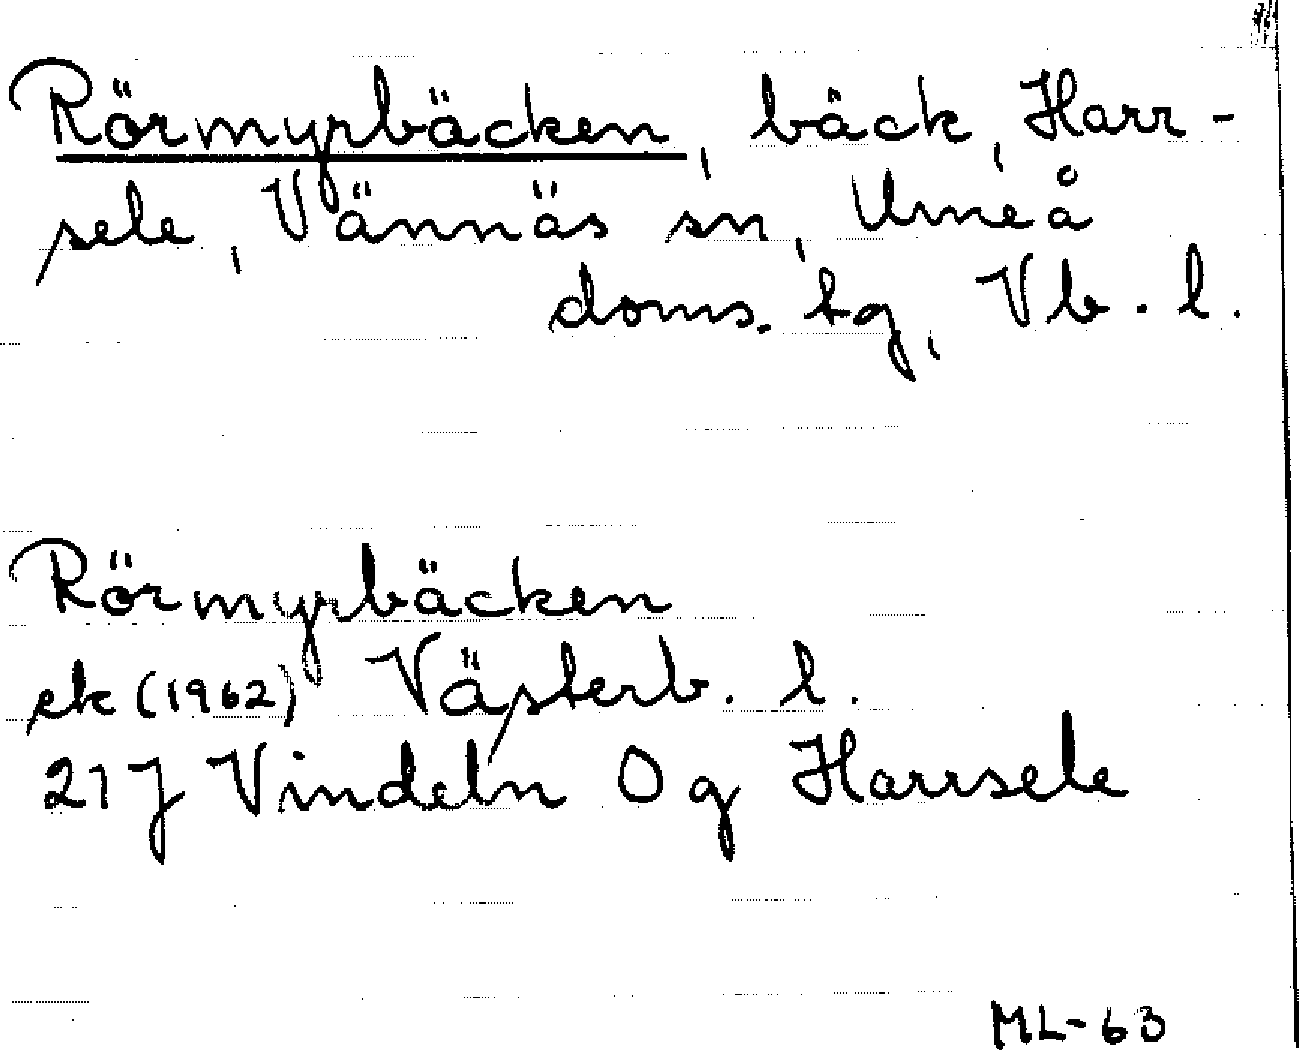 Rörmyrbäcken, bäck, Harr-
sele, Vännäs sn, Umeå
doms. tg, Vb. l.
Rörmyrbäcken
ek (1962) Västerb. l.
21J Vindeln Og Harrsele
ML-63